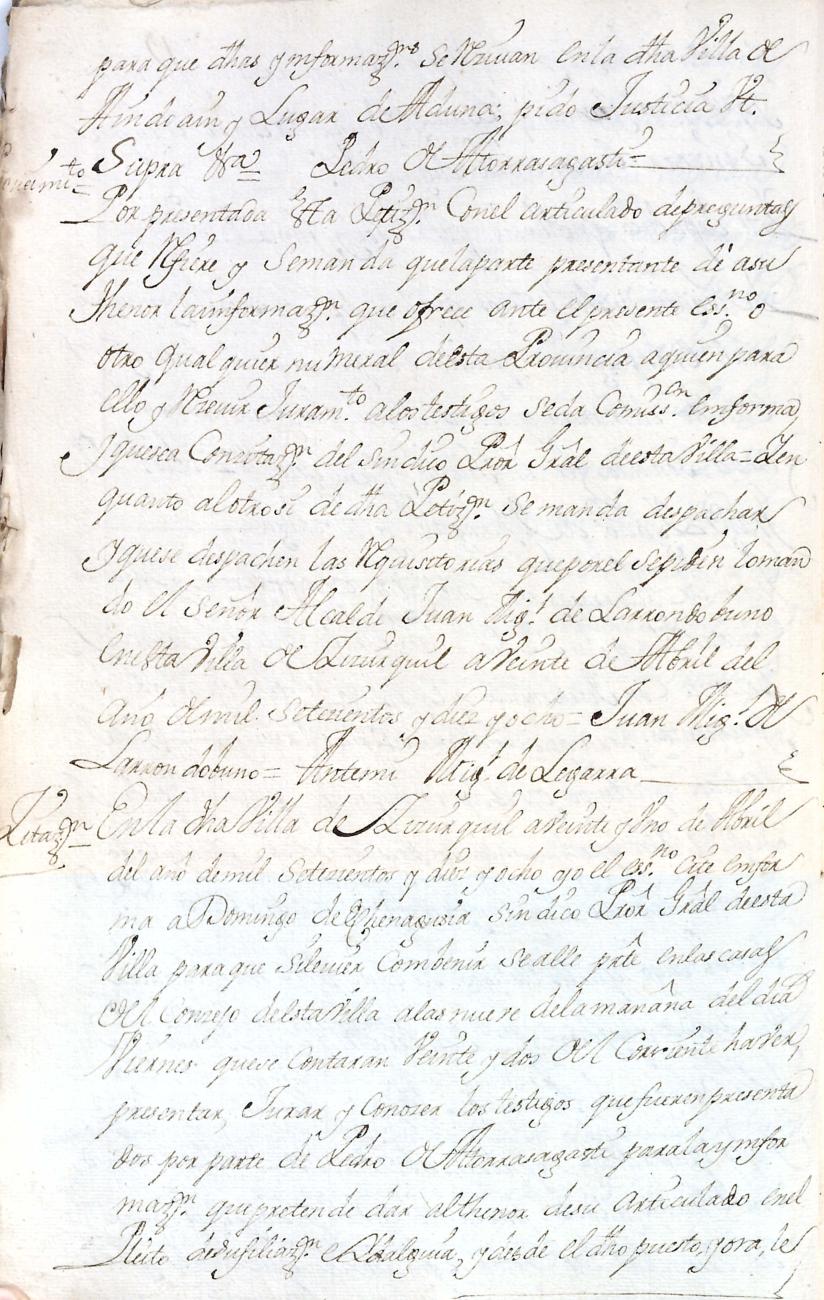 para que dhas ynformazⁿˢ se reciuan en la dha Villa de
Aindoain y Lugar de Aduna, pido Justicia Vt.
Supra Vᵗᵃ = Pedro de Atorrasagasti =
Por presentada esta Petizⁿ. Con el articulado de preguntas
que refiere y se manda que la parte presentante dè a su
thenor la informazⁿ. que ofrece ante el presente ess.ⁿᵒ o
otro qualquier numeral de esta Prouincia a quien para
ello y reciuir Juram.ᵗᵒ a los testigos se da Comiss.ᵒⁿ en forma,
y que sea Con citazⁿ. del sindico Pror Gràl de esta Villa = Y en
quanto al otrosi de dha Petizⁿ. se manda despachar
y que se despachen las requisitorias que por el se piden Loman
do el Señor Alcalde Juan Mig.ˡ de Larrondobuno
en esta Villa de Lizurquil a Veinte de Abril del
año de mil setezientos y diez y ocho = Juan Mig.ˡ de
Larrondobuno = Antemi Mig.ˡ de Legarra
Zitazⁿ
En la dha Villa de Lizurquil a Veinte y Vno de Abril
del año de mil setezientos y diez y ocho yo el ess.ⁿᵒ cite en for
ma a Domingo de Echenagusia sindico Pror Gràl de esta
Villa para que si le uier Combenir se alle prte en las casas
del Conzejo de esta Villa a las nueve de la mañana del dia
Viernes que se Contaran Veinte y dos del Corriente ha Ver,
presentar, Jurar y Conozer los testigos que fueren presenta
dos por parte de Pedro de Atorrasagasti para la ynfor
mazⁿ. que pretende dar al thenor de su articulado en el
Pleito de su filiazⁿ e Hidalguia, y desde el dho puesto, y ora, le